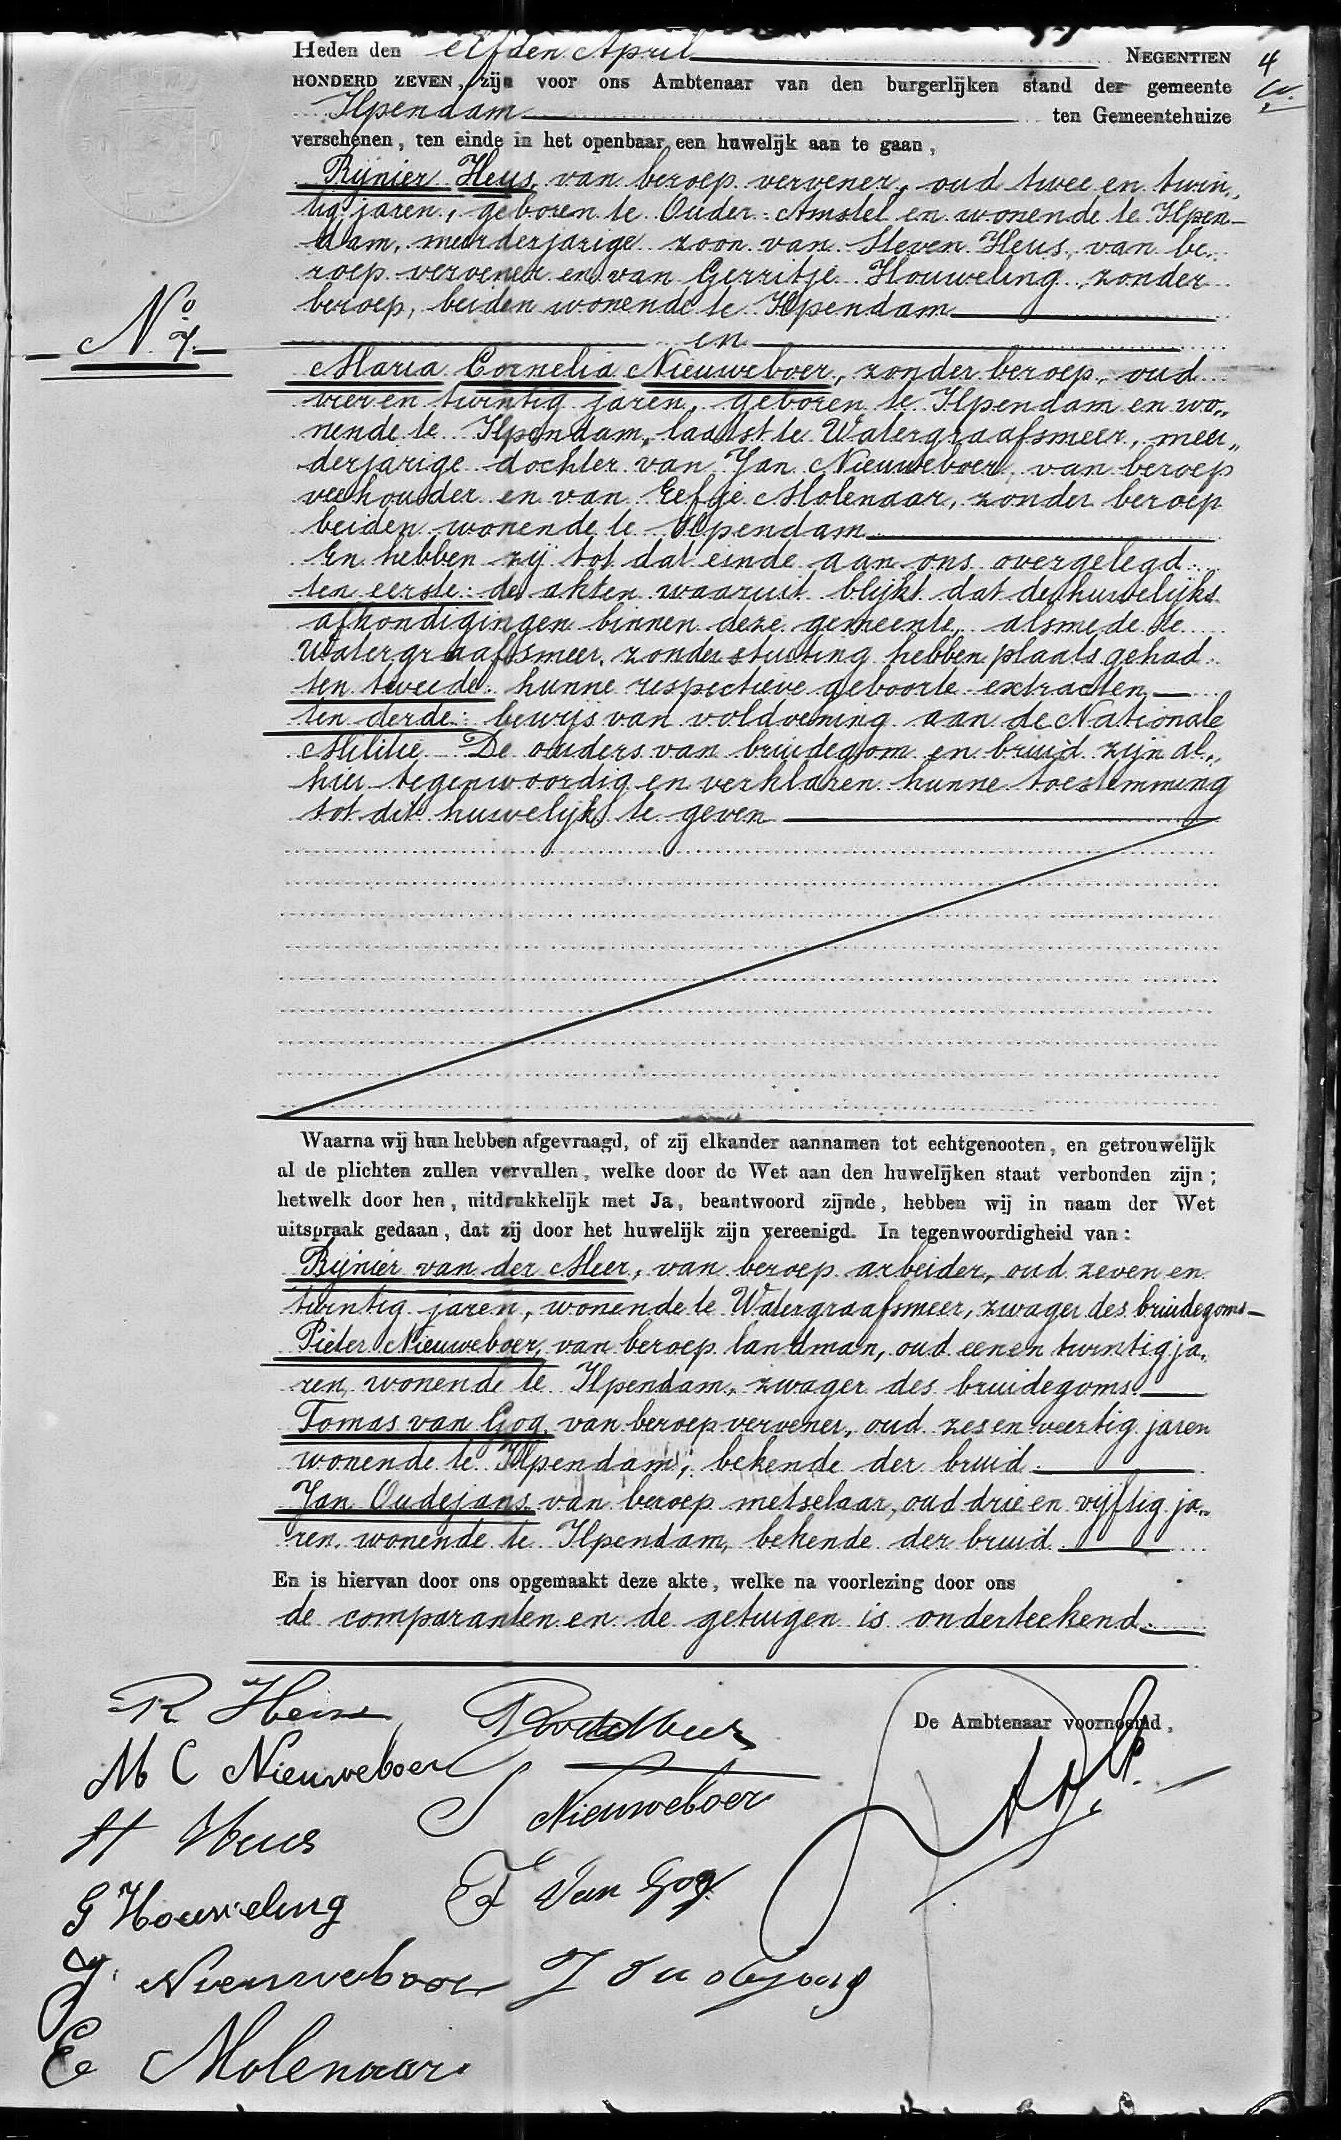 Heden den elfden April NEGENTIEN
4
HONDERD ZEVEN, zijn voor ons Ambtenaar van den burgerlijken stand der gemeente
Ilpendam ten Gemeentehuize
verschenen, ten einde in het openbaar een huwelijk aan te gaan,
Rijnier Heus, van beroep vervener, oud twee en twin„
tig jaren, geboren te Ouder-Amstel en wonende te Ilpen-
dam, meerderjarige zoon van Steven Heus, van be„
roep vervener en van Gerritje Houweling, zonder
beroep, beiden wonende te Ilpendam
No 7.
en
Maria Cornelia Nieuweboer, zonder beroep, oud
vier en twintig jaren, geboren te Ilpendam en wo„
nende te Ilpendam, laatst te Watergraafsmeer, meer„
derjarige dochter van Jan Nieuweboer, van beroep
veehouder en van Eefje Molenaar, zonder beroep
beiden wonende te Ilpendam
En hebben zij tot dat einde aan ons overgelegd
ten eerste: de akten waaruit blijkt dat de huwelijks
afkondigingen binnen deze gemeente, alsmede te
Watergraafsmeer, zonder stuiting hebben plaats gehad.
ten tweede: hunne respectieve geboorte extracten
ten derde: bewijs van voldoening aan de Nationale
Militie. De ouders van bruidegom en bruid zijn al„
hier tegenwoordig en verklaren hunne toestemming
tot dit huwelijk te geven
Waarna wij hun hebben afgevraagd, of zij elkander aannamen tot echtgenooten, en getrouwelijk
al de plichten zullen vervullen, welke door de Wet aan den huwelijken staat verbonden zijn;
hetwelk door hen, uitdrukkelijk met Ja, beantwoord zijnde, hebben wij in naam der Wet
uitspraak gedaan, dat zij door het huwelijk zijn vereenigd. In tegenwoordigheid van:
Rijnier van der Meer, van beroep arbeider, oud zeven en
twintig jaren, wonende te Watergraafsmeer, zwager des bruidegoms
Pieter Nieuweboer, van beroep landman, oud een en twintig ja„
ren, wonende te Ilpendam, zwager des bruidegoms.
Tomas van Gog, van beroep vervener, oud zes en veertig jaren
wonende te Ilpendam, bekende der bruid
Jan Oudejans van beroep metselaar, oud drie en vijftig ja„
ren wonende te Ilpendam, bekende der bruid
En is hiervan door ons opgemaakt deze akte, welke na voorlezing door ons
de comparanten en de getuigen is onderteekend
De Ambtenaar voornoemd,
R Heus
M C Nieuweboer
P Nieuweboer
Heus
G Houweling
T Van Gog
J Nieuweboer
J Oudejans
E Molenaar